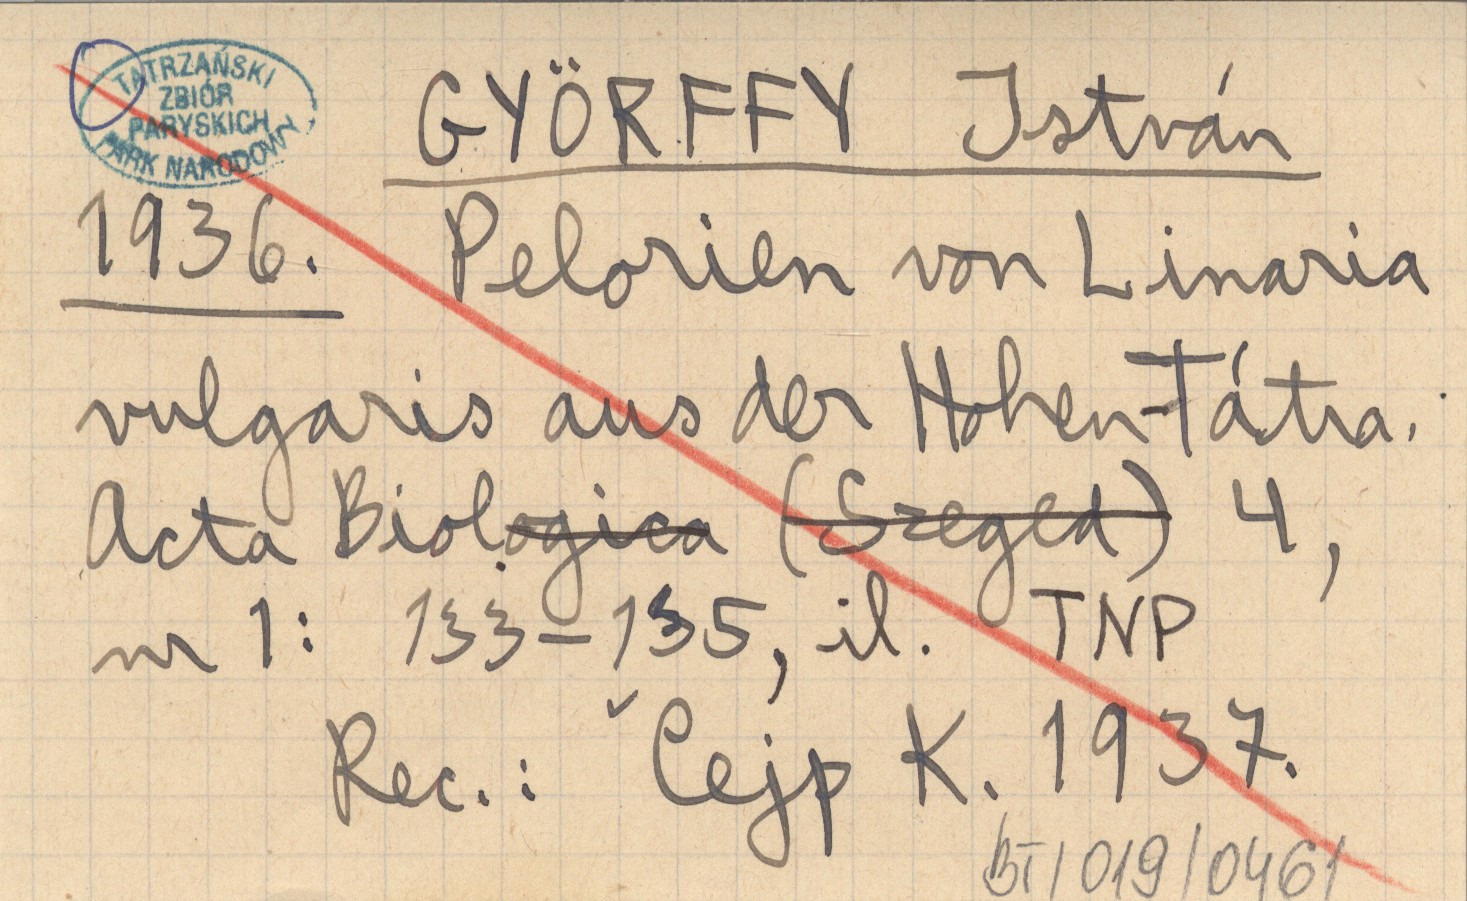 TATRZAŃSKI
ZBIÓR
PARYSKICH
PARK NARODOWY
GYÖRFFY István
1936. Pelorien von Linaria
vulgaris aus der Hohen-Tátra.
Acta Biologica (Szeged) 4,
nr 1: 133-135, il. TNP
Rec.: Čejp K. 1937.
BT/019/0461